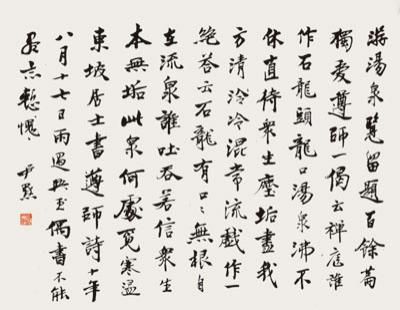 游湯泉覽留題百餘篇
獨愛遵師一偈云禪庭誰
作石龍頭龍口湯泉沸不
休直待衆生塵垢盡我
方清冷冷混常流戲作一
絶答云石龍有口口無根自
在流泉誰吐吞若信衆生
本無垢此泉何處覓寒温
東坡居士書遵師詩十年
八月十七日雨過興至偶書不能
志慙愧 尹默